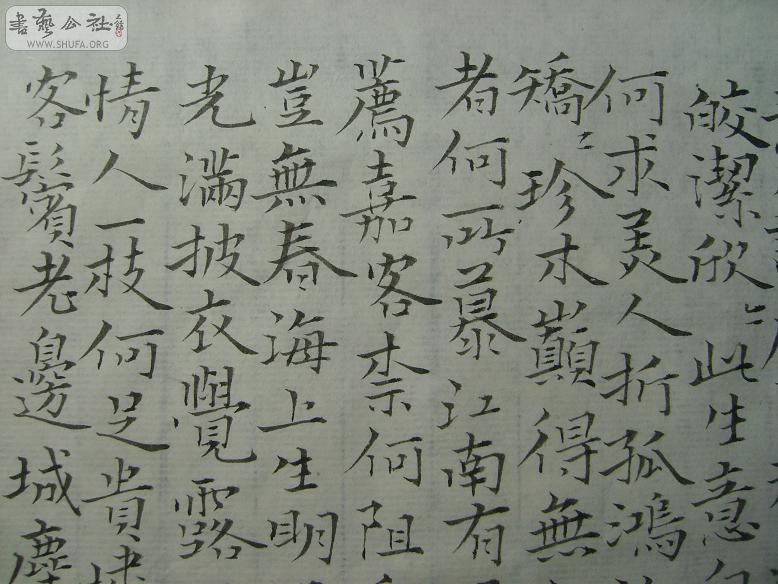 皎潔欣〻此生意
何求美人折孤鴻
矯〻珍木巔得無
者何所慕江南有
薦嘉客柰何阻
豈無春海上生明
光滿披衣覺露
情人一枝何足貴
客鬢老邊城塵
書藝公社
WWW.SHUFA.ORG